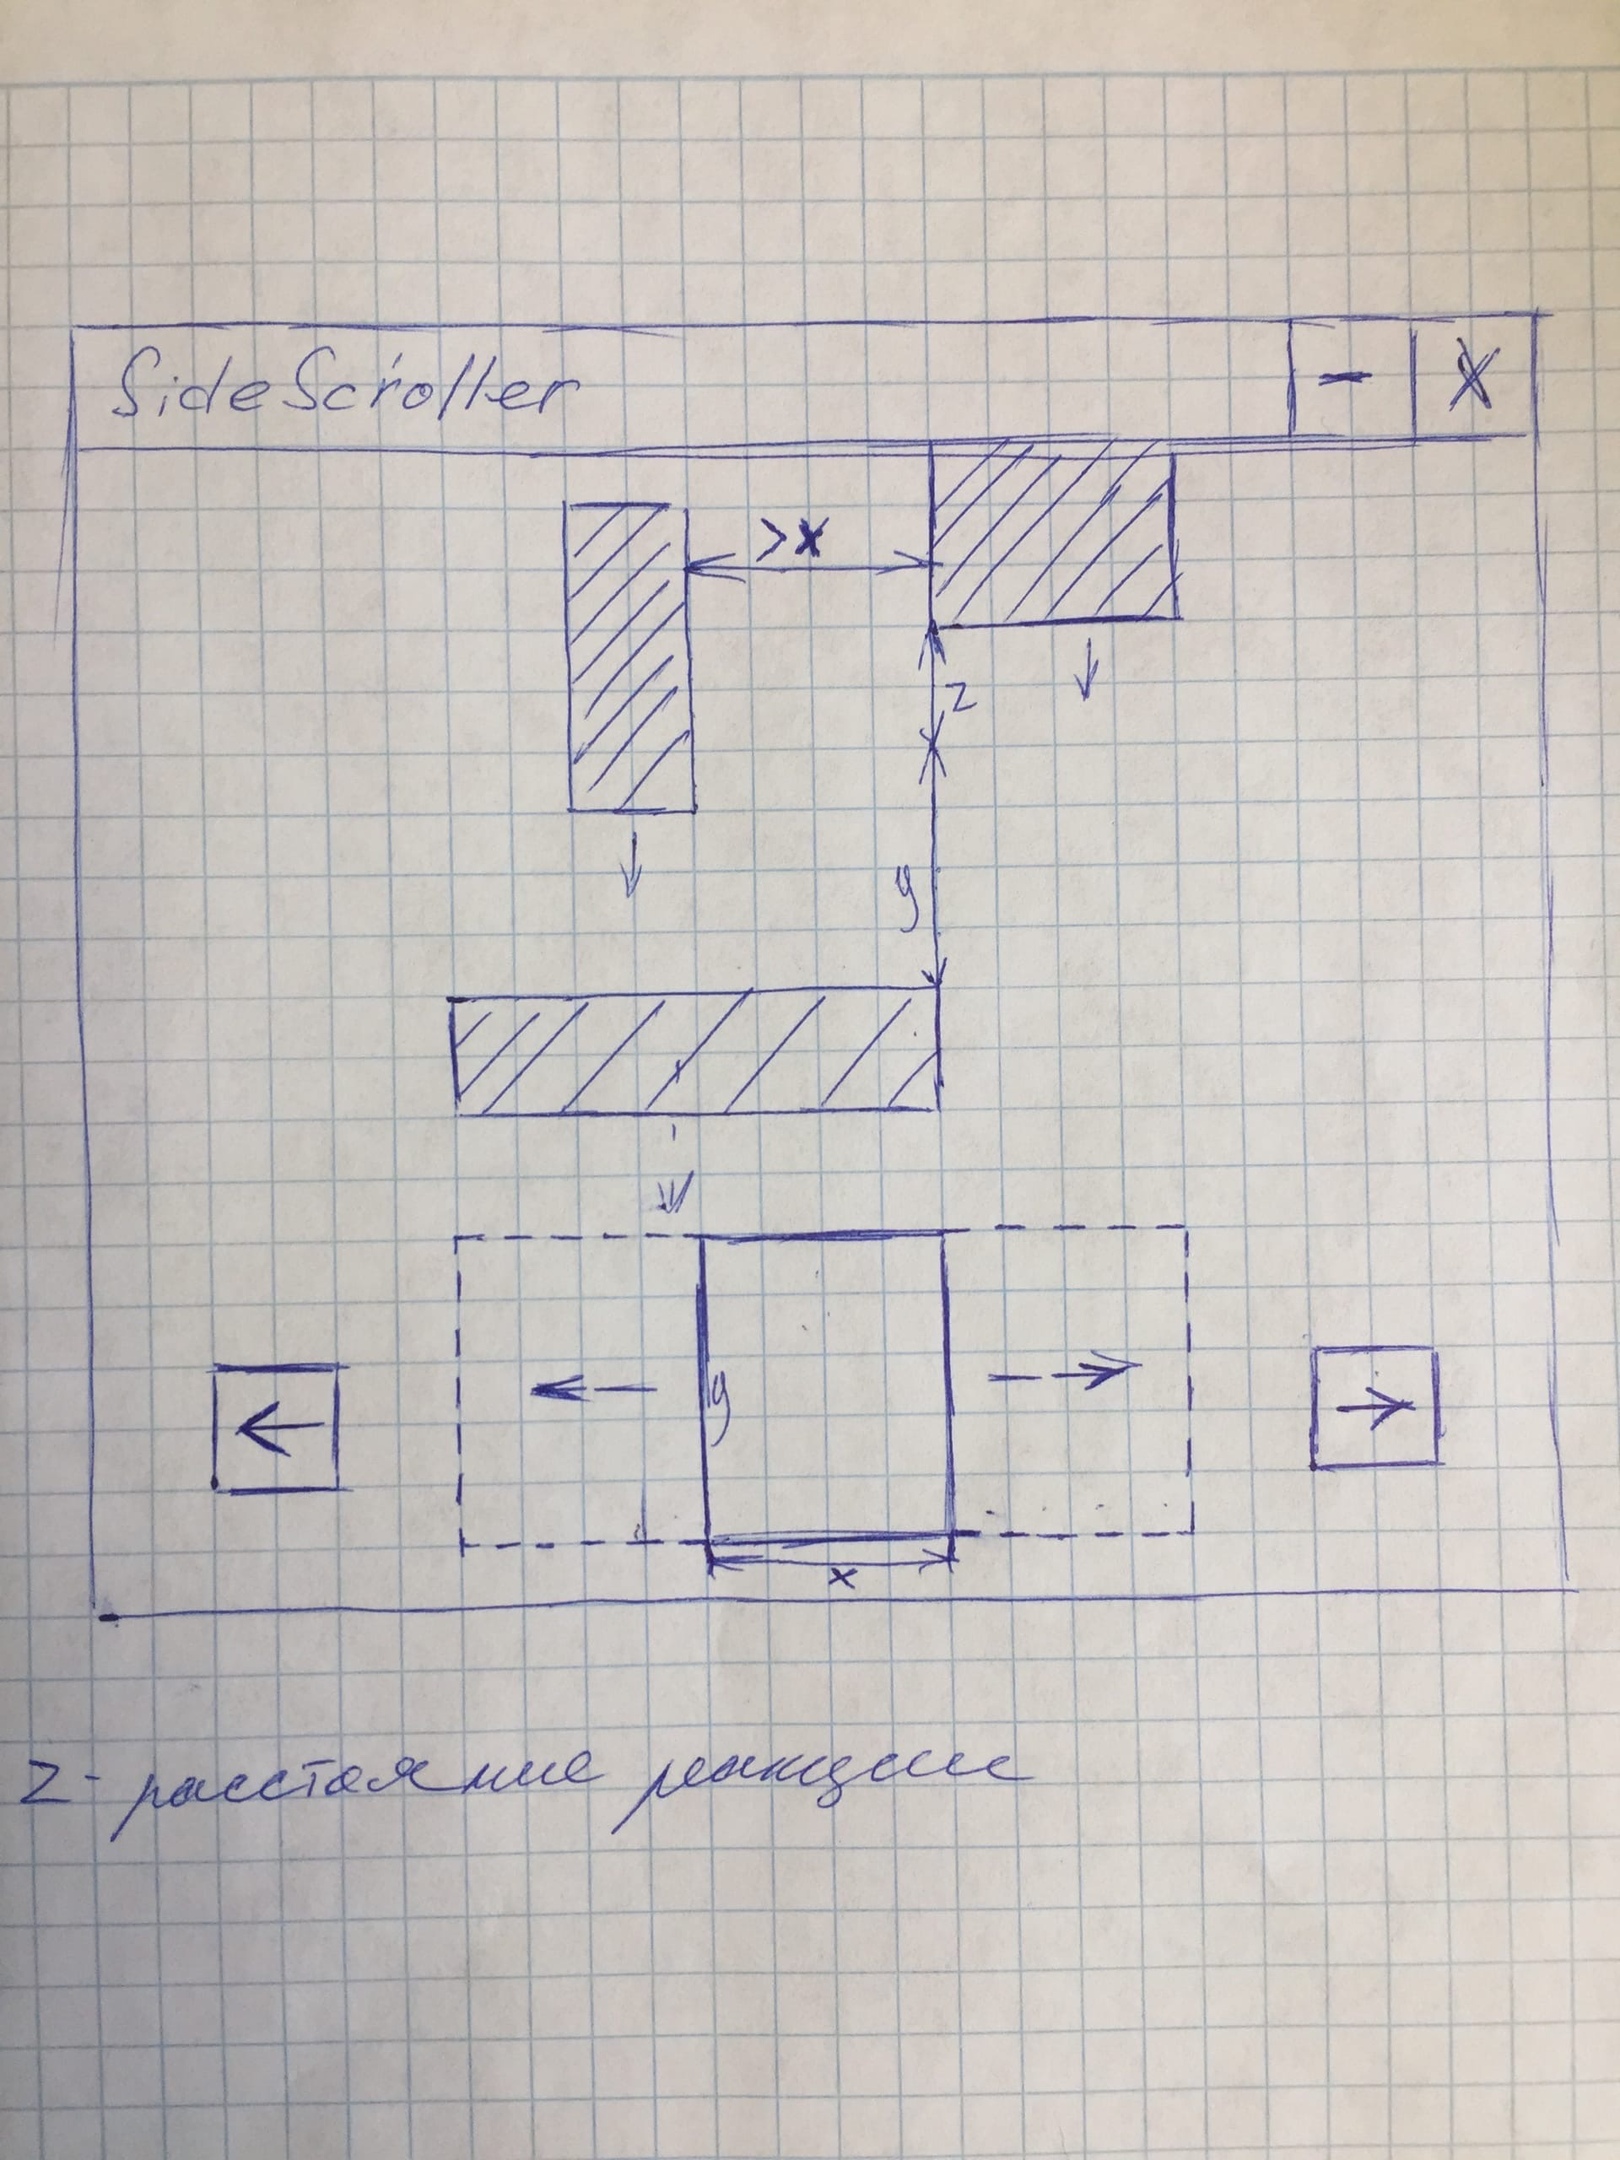 SideScroller - X
>x
z
y
y
x
z - расстояние реакции